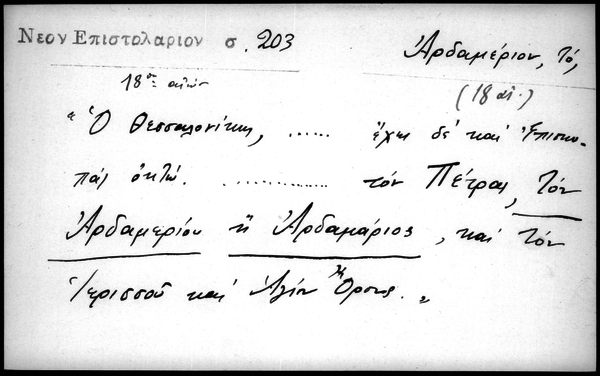 Νεον Επιστολαριον σ. 203
Ἀρδαμέριον, τό,
18ος αἰών
(18 αἰ.)
"Ὁ Θεσσαλονίκης, ...... ἔχει δέ καί Ἐπισκο-
πάς ὀκτώ. .............. τόν Πέτρας, τόν
Ἀρδαμερίου ἤ Ἀρδαμάριος, καί τόν
Ἱερισσοῦ καί Ἁγίου Ὄρους."